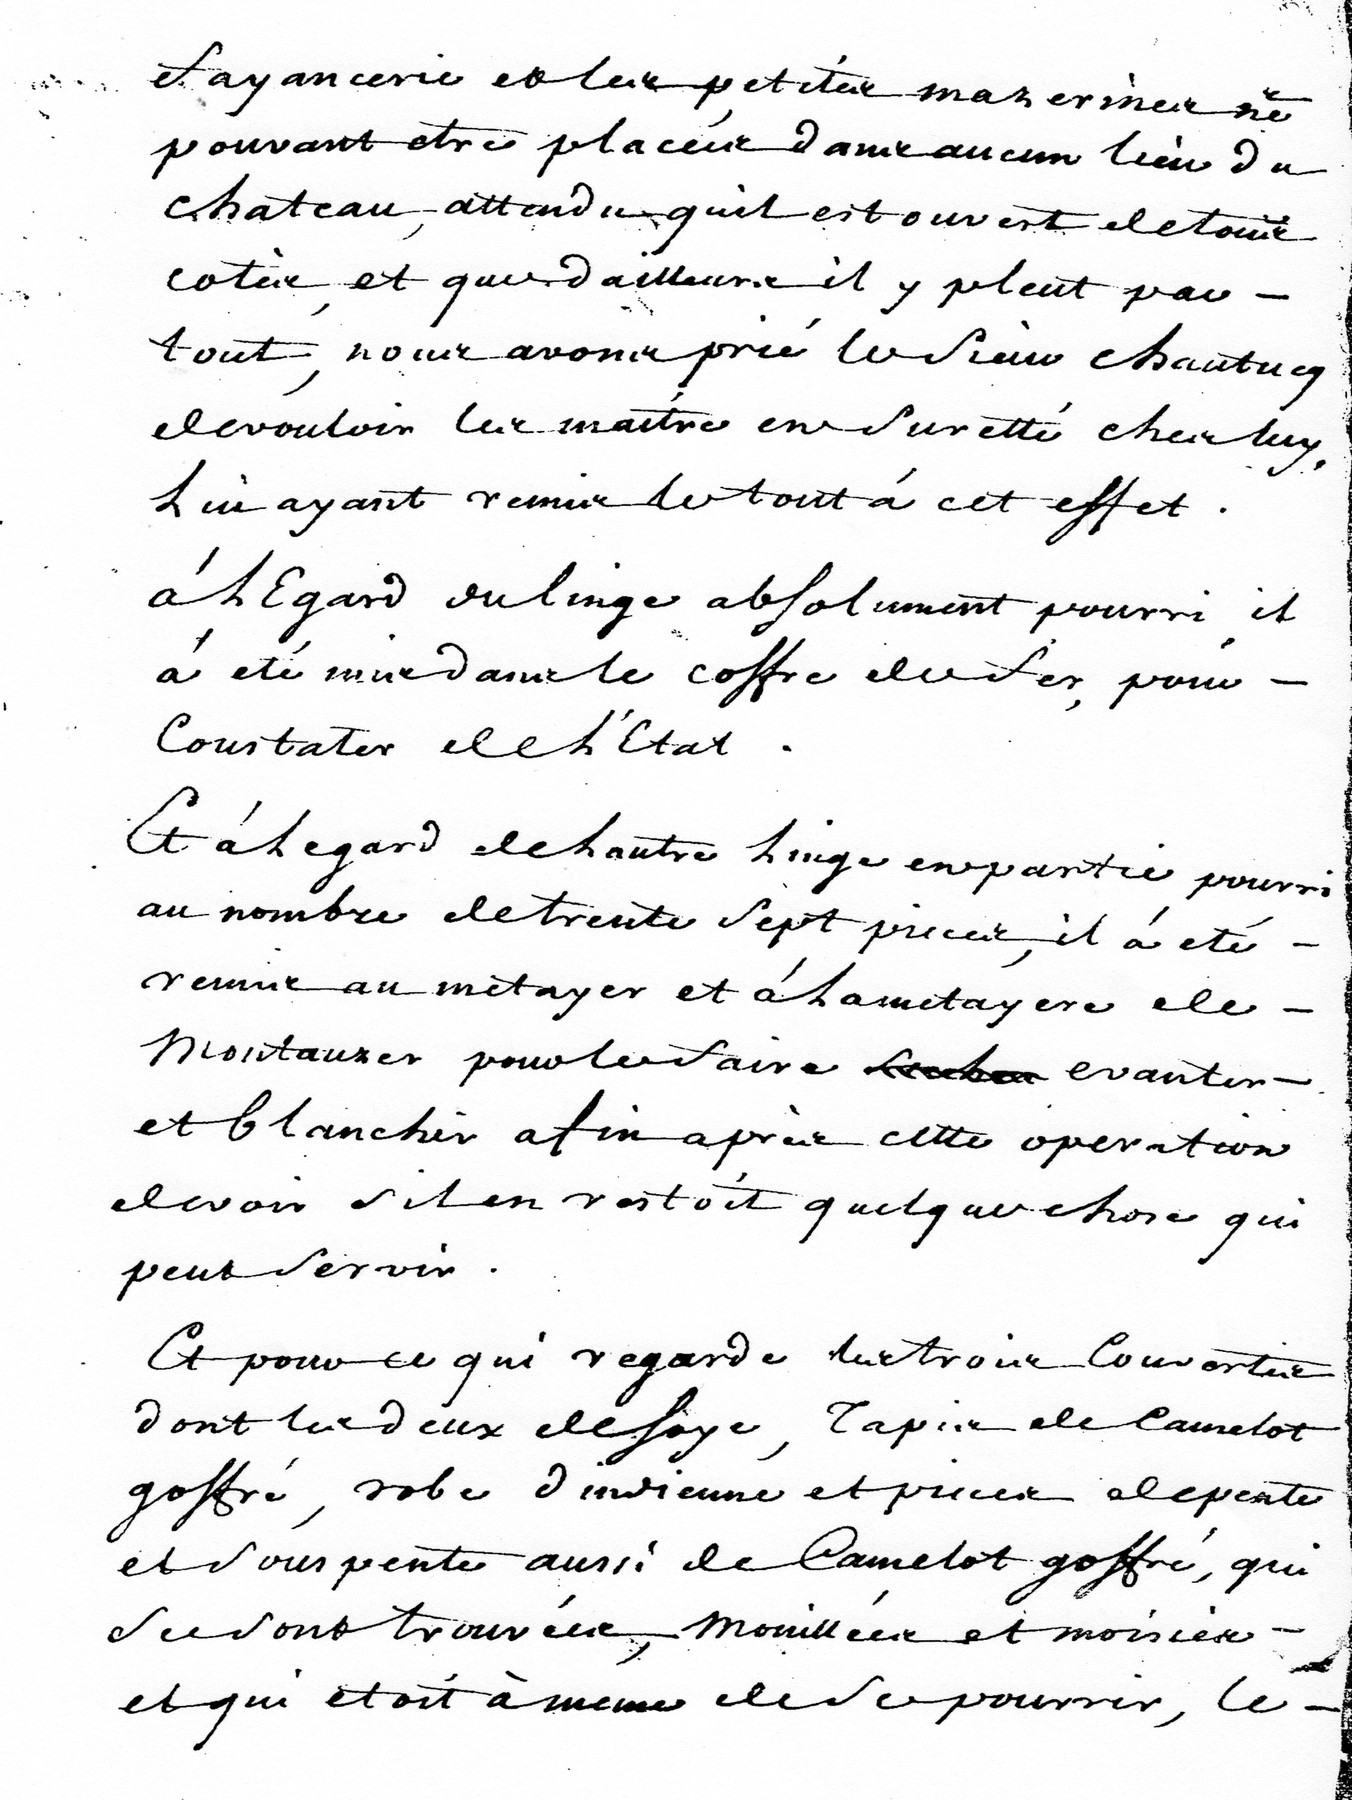 fayancerie et les petites mazerines ne
pouvant etre placées dans aucun lieu du
chateau, attendu quil est ouvert de tous
cotés, et que dailleurs il y pleut par –
tout, nous avons prié le sieur chautucq
de vouloir les maitre en suretté ches luy,
lui ayant remis le tout á cet effet .
á l'Egard du linge absolument pourri il
á eté mis dans le coffre de fer, pour –
Constater de l'Etat .
Et á l egard de lautre linge en partie pourri
au nombre de trente sept pieces, il á eté –
remis au metayer et á la metayere de –
Montauzer pour le faire evanter –
et blanchir afin aprés cette operation
de voir sil en restoit quelque chose qui
peut servir .
Et pour ce qui regarde les trois Couvertes
dont les deux de soye, Tapis de Camelot
goffré, robe dindienne et pieces de pente
et souspente aussi de Camelot goffré, qui
se sont trouvées, mouillées et moisies –
et qui etoit à meme de se pourrir, le –